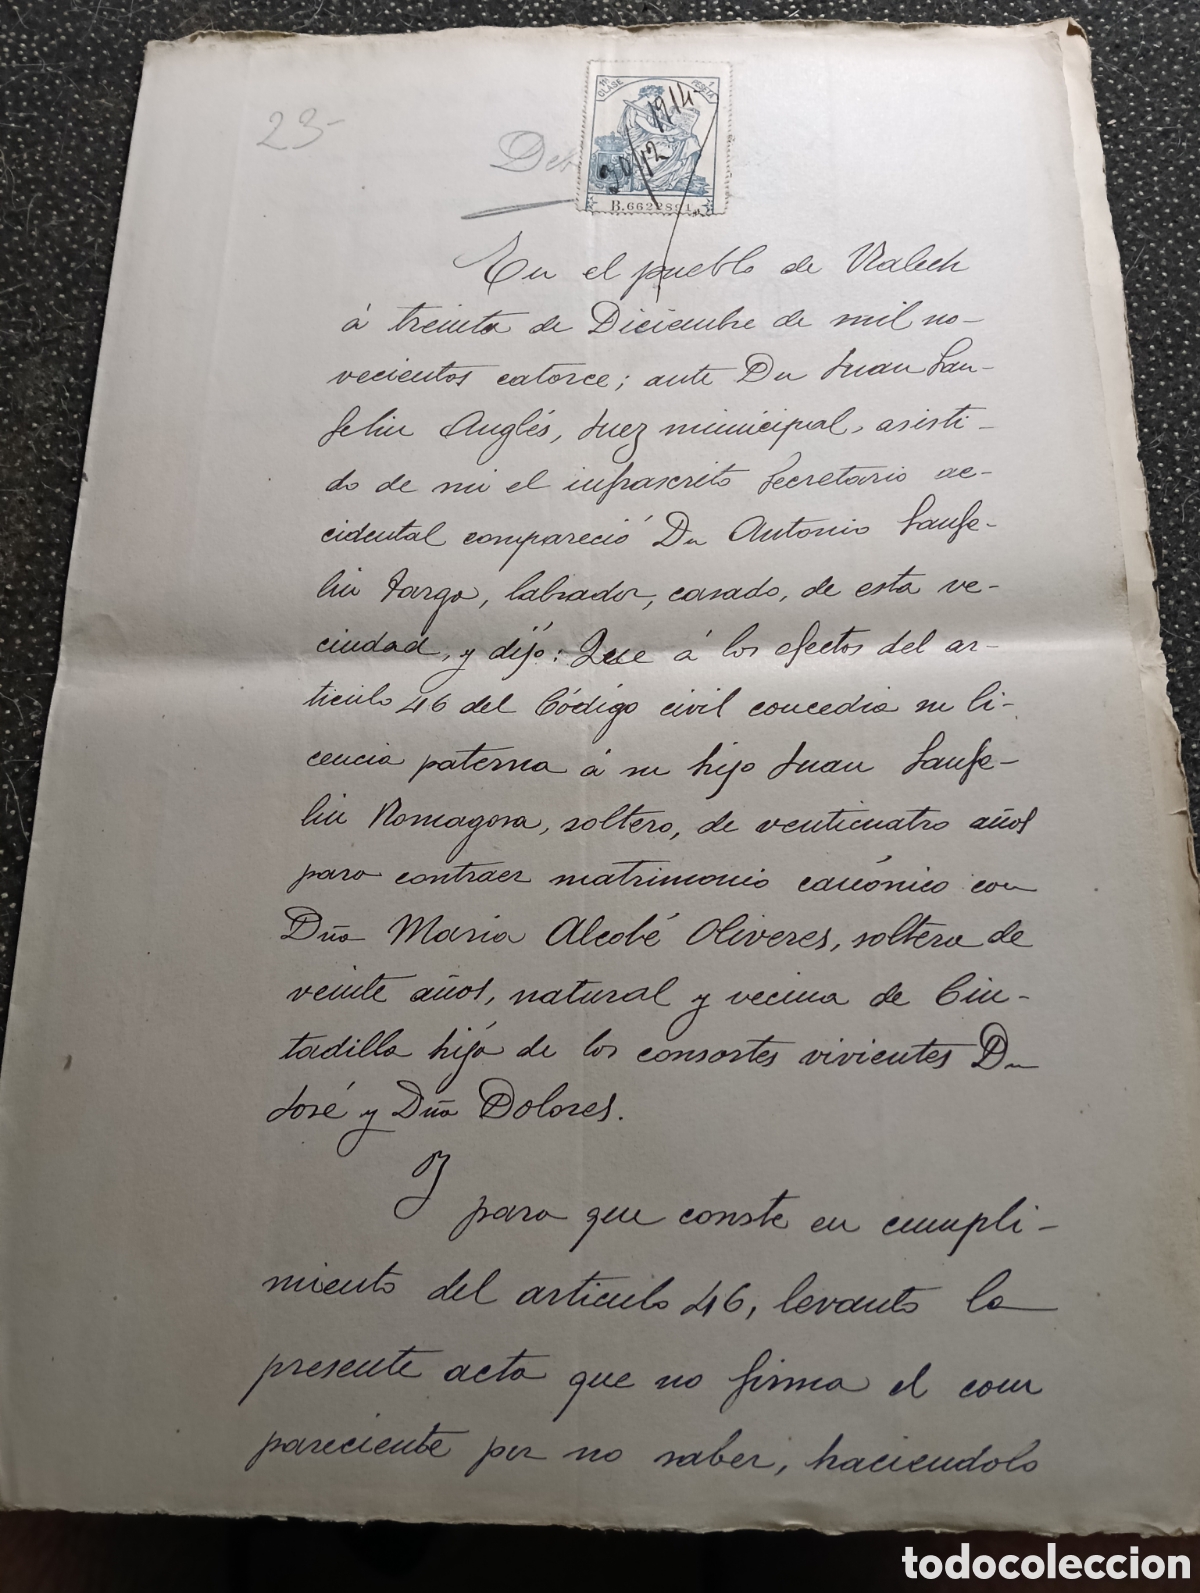 23-
11ª CLASE
1 PESETA
30/12 1914
B.6622891
En el pueblo de Nalech
á treinta de Diciembre de mil no-
vecientos catorce; ante Dn Juan San-
feliu Anglés, Juez municipal, asisti-
do de mi el infrascrito Secretario ac-
cidental compareció Dn Antonio Sanfe-
liu Targa, labrador, casado, de esta ve-
ciudad, y dijo: Que á los efectos del ar-
ticulo 46 del Código civil concedia su li-
cencia paterna á su hijo Juan Sanfe-
liu Romagosa, soltero, de venticuatro años
para contraer matrimonio canónico con
Dña Maria Alcobé Oliveres, soltera de
veinte años, natural y vecina de Ciu-
tadilla hija de los consortes vivientes Dn
José y Dña Dolores.
Y para que conste en cumpli-
miento del articulo 46, levanto la
presente acta que no firma el com
pareciente por no saber, haciendolo
todocoleccion